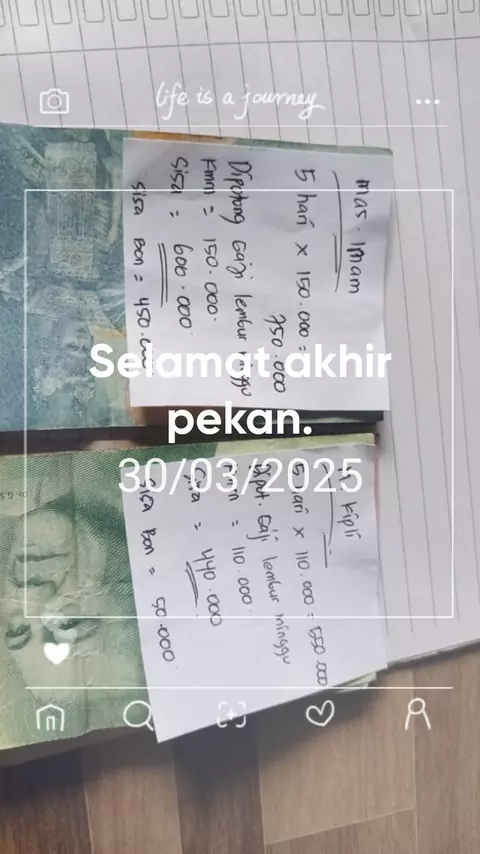 life is a journey
mas. Imam
5 hari x 150.000 =
750.000
Dipotong gaji lembur minggu
Kmrn = 150.000.
Sisa = 600.000
Sisa Bon = 450.000
Selamat akhir
pekan.
30/03/2025
Kipli
5 hari x 110.000 = 550.000
Dipot. Gaji lembur minggu
Kmrn = 110.000.
Sisa = 440.000
Sisa Bon = 50.000.